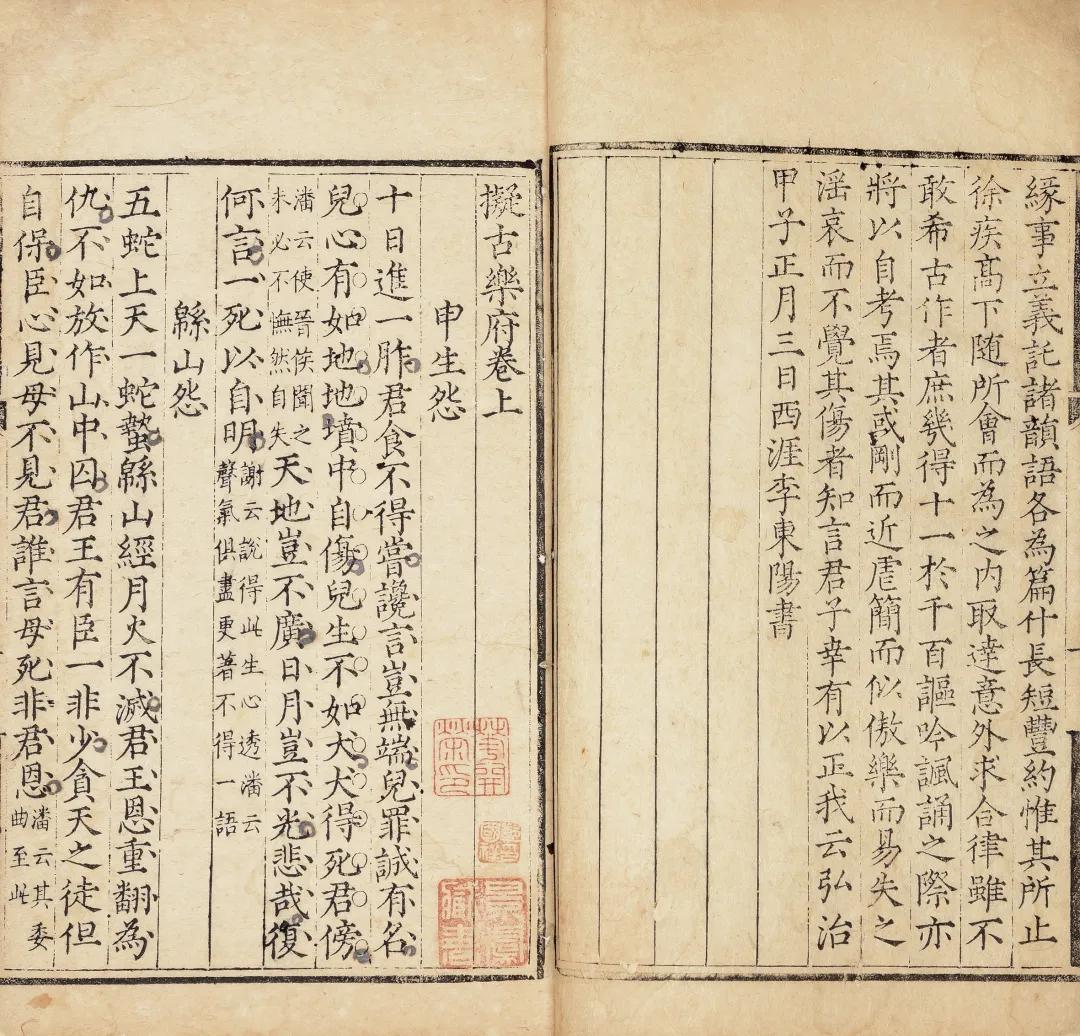 緣事立義託諸韻語各為篇什長短豐約惟其所止
徐疾高下随所會而為之内取達意外求合律雖不
敢希古作者庶幾得十一於千百謳吟諷誦之際亦
將以自考焉其或剛而近虐簡而似傲樂而易失之
滛哀而不覺其傷者知言君子幸有以正我云弘治
甲子正月三日西涯李東陽書
擬古樂府卷上
申生怨
十日進一胙君食不得嘗讒言豈無端兒罪誠有名
兒心有如地地墳中自傷兒生不如犬犬得死君傍
潘云使晉侯聞之
未必不憮然自失
天地豈不廣日月豈不光悲哉復
何言一死以自明
謝云說得此生心透潘云
聲氣俱盡更著不得一語
緜山怨
五蛇上天一蛇蟄緜山經月火不滅君王恩重翻為
仇不如放作山中囚君王有臣一非少貪天之徒但
自保臣心見母不見君誰言母死非君恩
潘云其委
曲至此